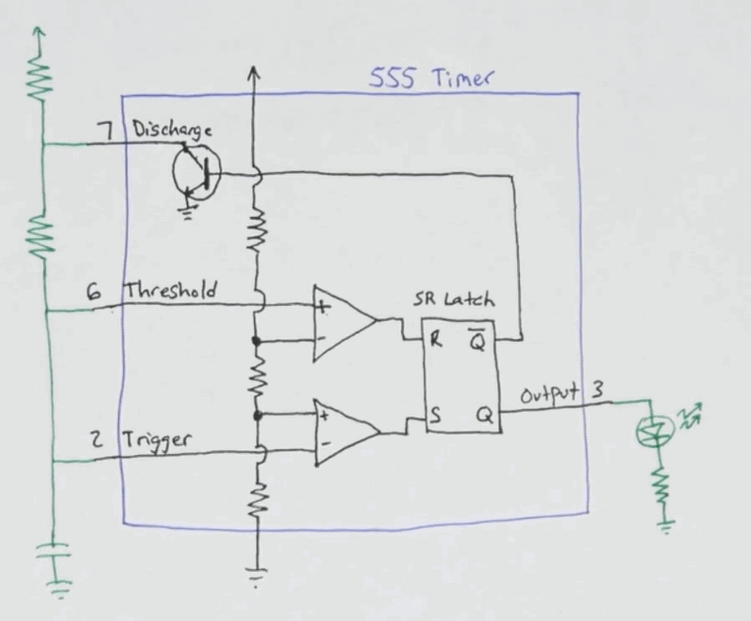 555 Timer
7 Discharge
6 Threshold
+
-
SR Latch
R Q̅
S Q
Output 3
+
-
2 Trigger